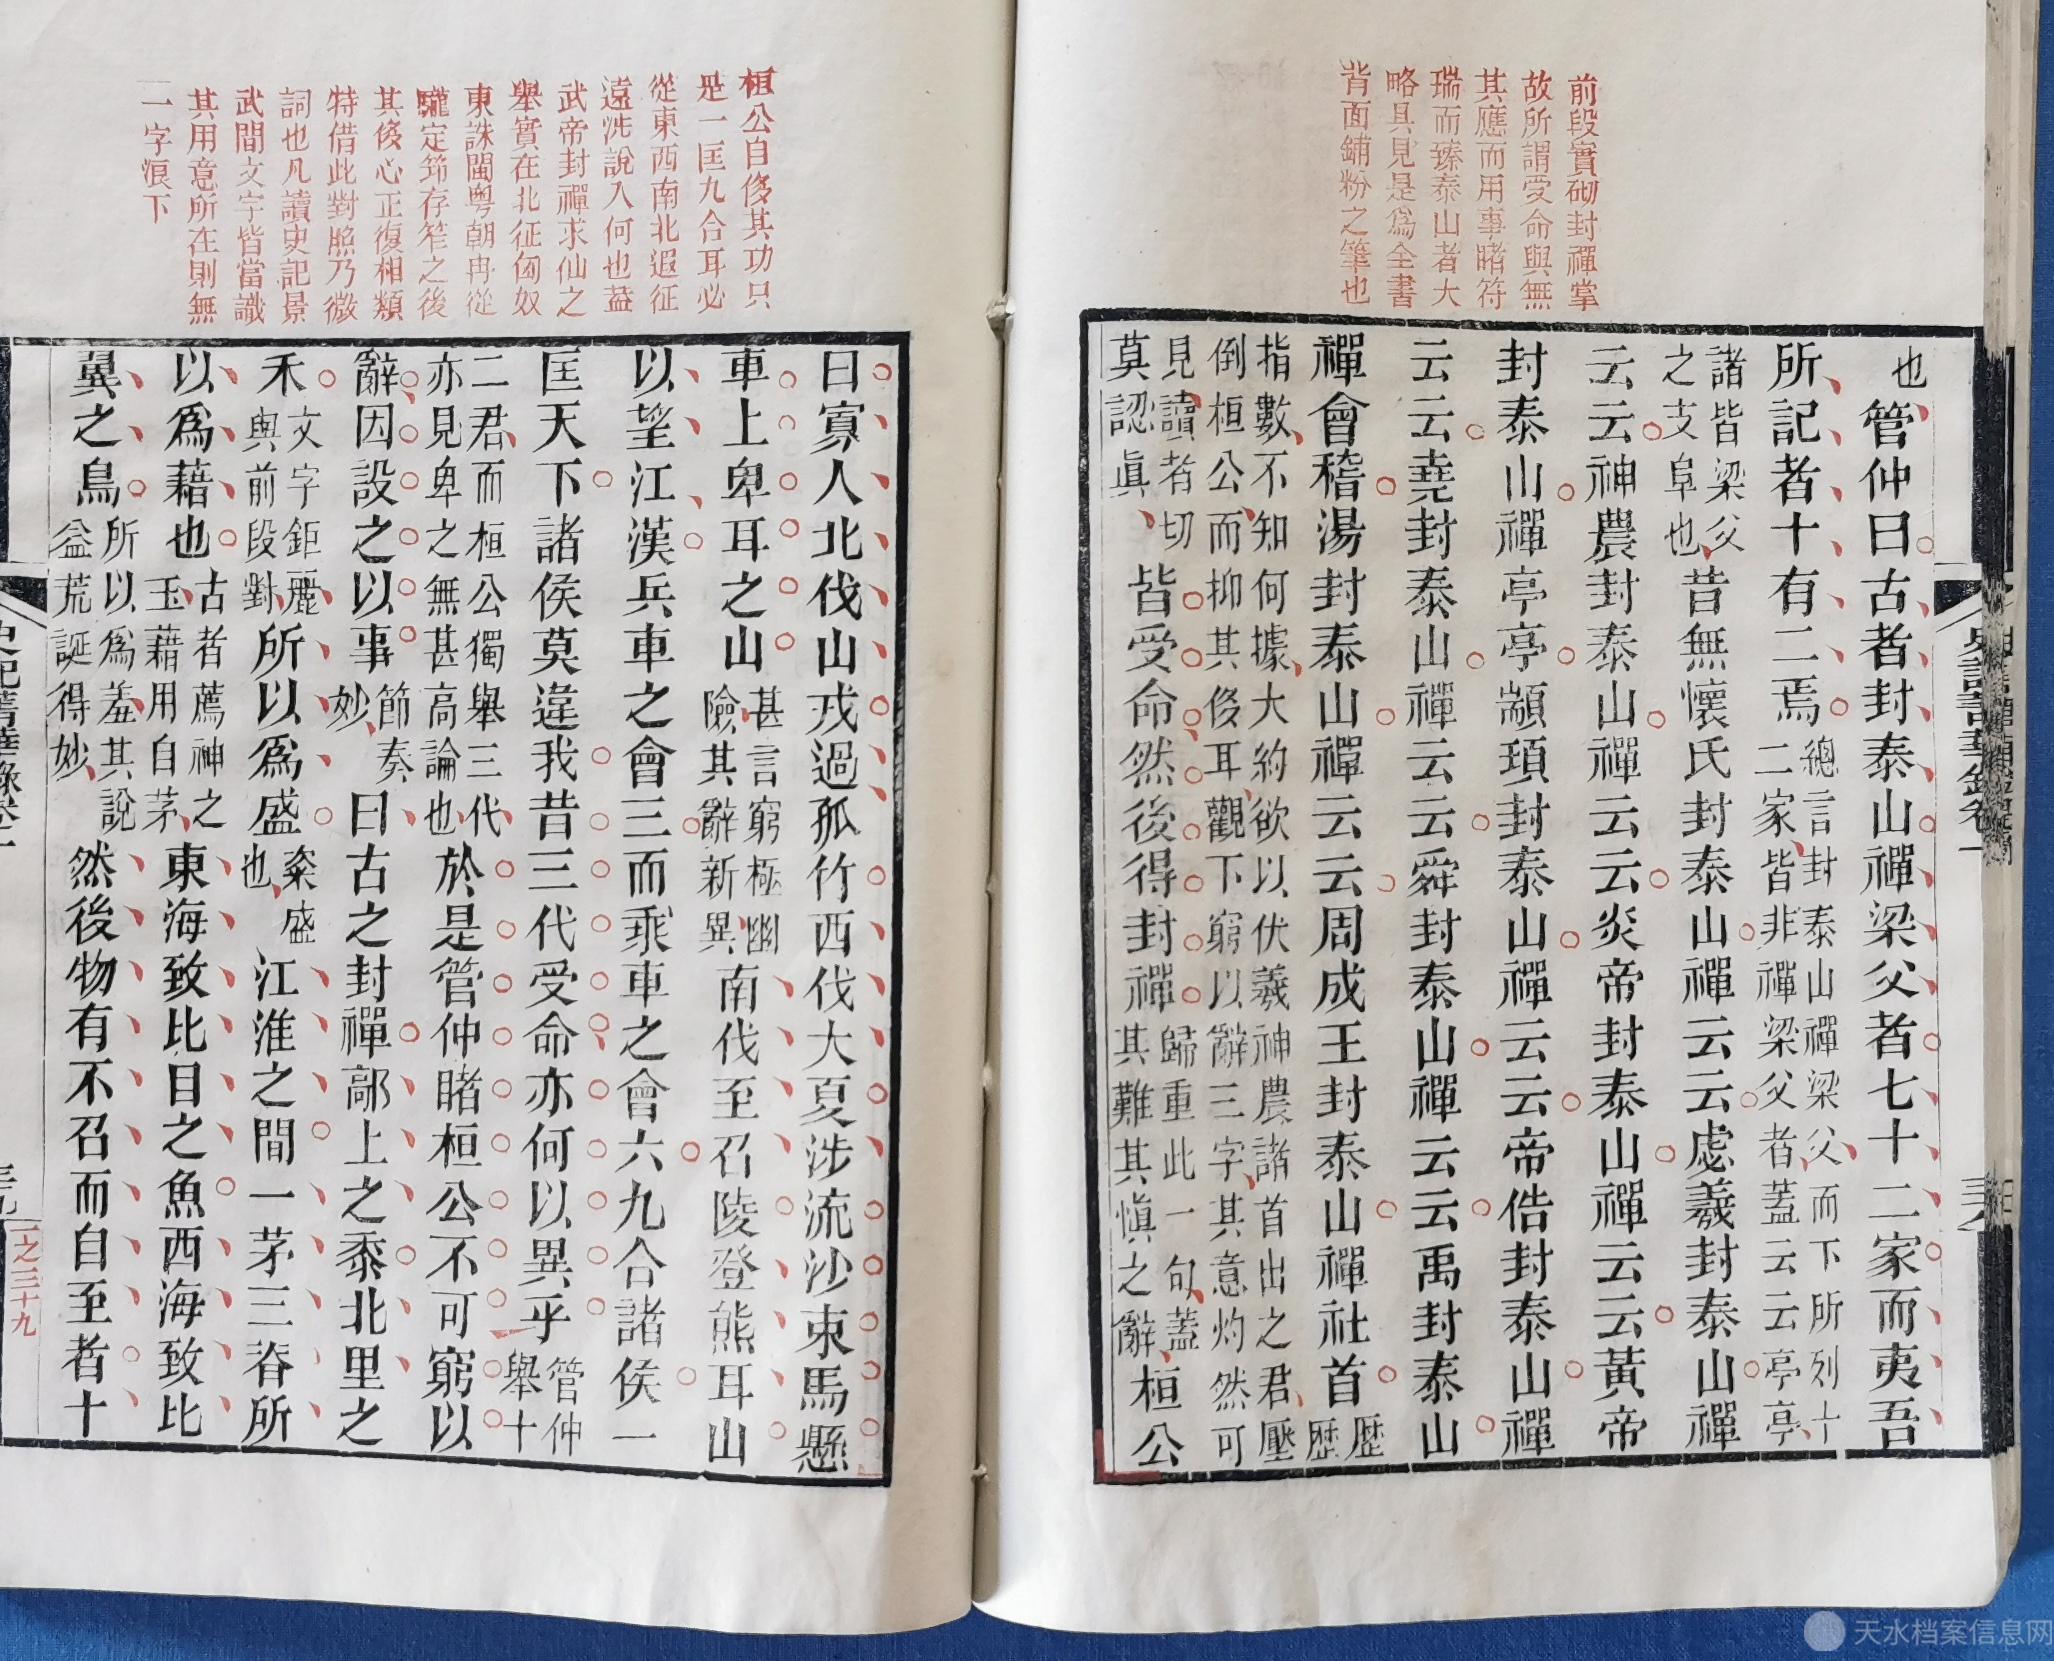 前段實砌封禪掌
故所謂受命與無
其應而用事睹符
瑞而臻泰山者大
略具見是爲全書
背面鋪粉之筆也
也
管仲曰古者封泰山禪梁父者七十二家而夷吾
所記者十有二焉
總言封泰山禪梁父而下所列十
二家皆非禪梁父者蓋云云亭亭
諸皆梁父
之支阜也
昔無懷氏封泰山禪云云虙羲封泰山禪
云云神農封泰山禪云云炎帝封泰山禪云云黃帝
封泰山禪亭亭顓頊封泰山禪云云帝俈封泰山禪
云云堯封泰山禪云云舜封泰山禪云云禹封泰山
禪會稽湯封泰山禪云云周成王封泰山禪社首
歷
歷
指數不知何據大約欲以伏羲神農諸首出之君壓
倒桓公而抑其侈耳觀下窮以辭三字其意灼然可
見讀者切
莫認眞
皆受命然後得封禪
歸重此一句蓋
其難其愼之辭
桓公
史記菁華錄卷一
桓公自侈其功只
是一匡九合耳必
從東西南北遐征
遠涉說入何也葢
武帝封禪求仙之
舉實在北征匈奴
東誅閩粤朝冉從
駹定筰存筰之後
其侈心正復相類
特借此對照乃微
詞也凡讀史記景
武間文字皆當識
其用意所在則無
一字浪下
曰寡人北伐山戎過孤竹西伐大夏涉流沙束馬懸
車上卑耳之山
甚言窮極幽
險其辭新異
南伐至召陵登熊耳山
以望江漢兵車之會三而乘車之會六九合諸侯一
匡天下諸侯莫違我昔三代受命亦何以異乎
管仲
舉十
二君而桓公獨舉三代
亦見卑之無甚高論也
於是管仲睹桓公不可窮以
辭因設之以事
節奏
妙
曰古之封禪鄗上之黍北里之
禾
文字鉅麗
與前段對
所以爲盛
粢盛
也
江淮之間一茅三脊所
以爲藉也
古者薦神之
玉藉用自茅
東海致比目之魚西海致比
翼之鳥
所以爲羞其說
益荒誕得妙
然後物有不召而自至者十
史記菁華錄卷一
三九
一之三十九
天水档案信息网